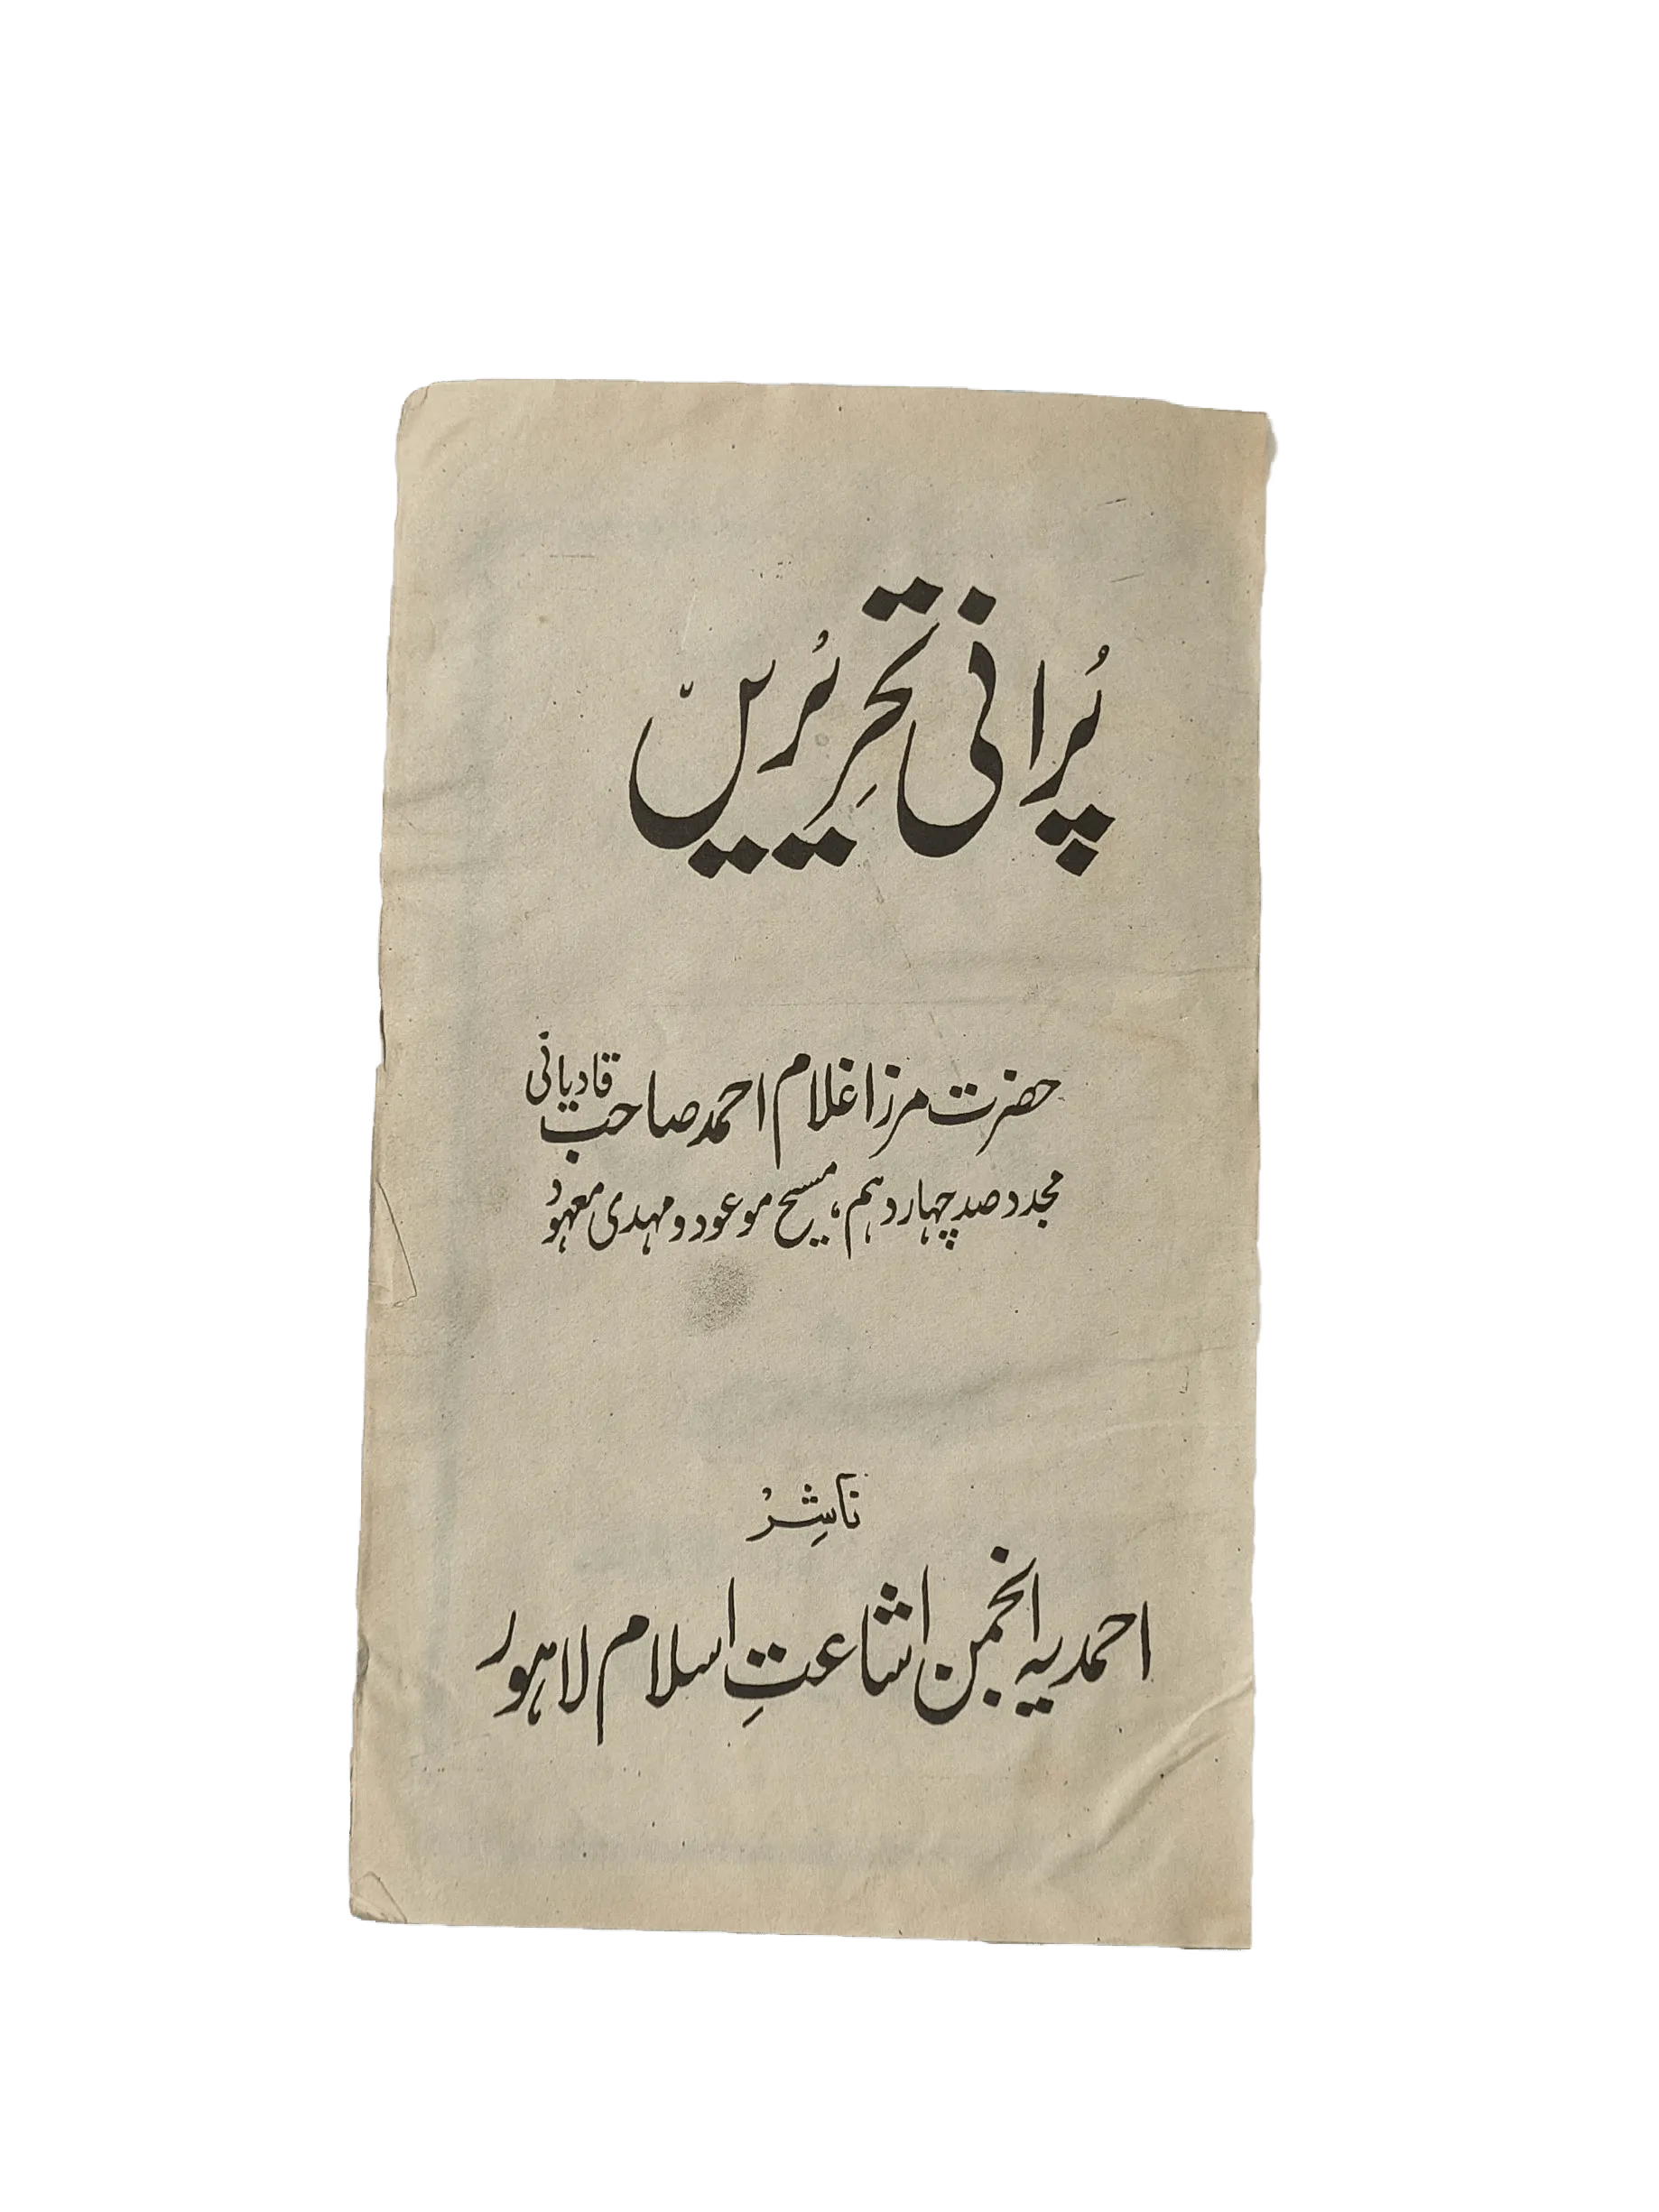 پُرانی تحرِیُریں
حضرت مرزا غلام احمد صاحب قادیانی
مجدد صد چہاردہم، مسیح موعود و مہدی معہود
ناشِرْ
احمدیہ انجمن اشاعتِ اسلام لاہور